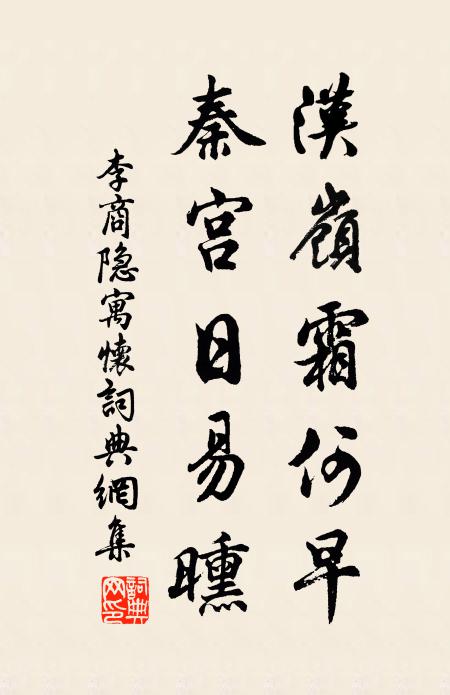 漢嶺霜何早
秦宮日易曛
李商隐寓懷詞典網集
詞典網印